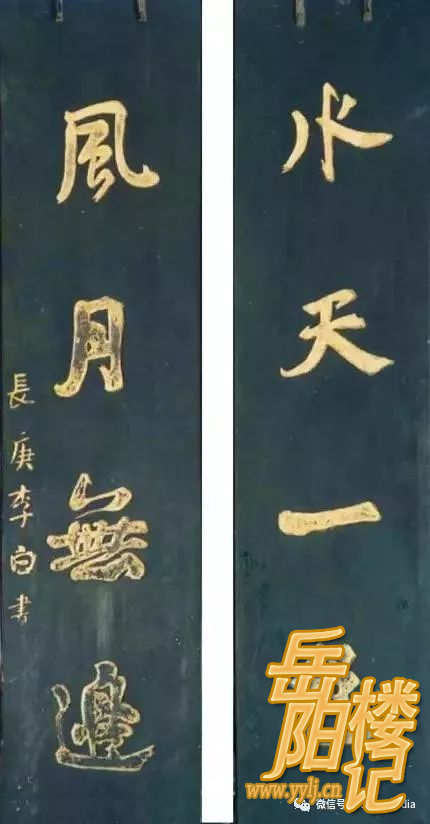 水天一
風月無邊
長庚李白書
岳阳楼记
www.yylj.cn
微信号
dia